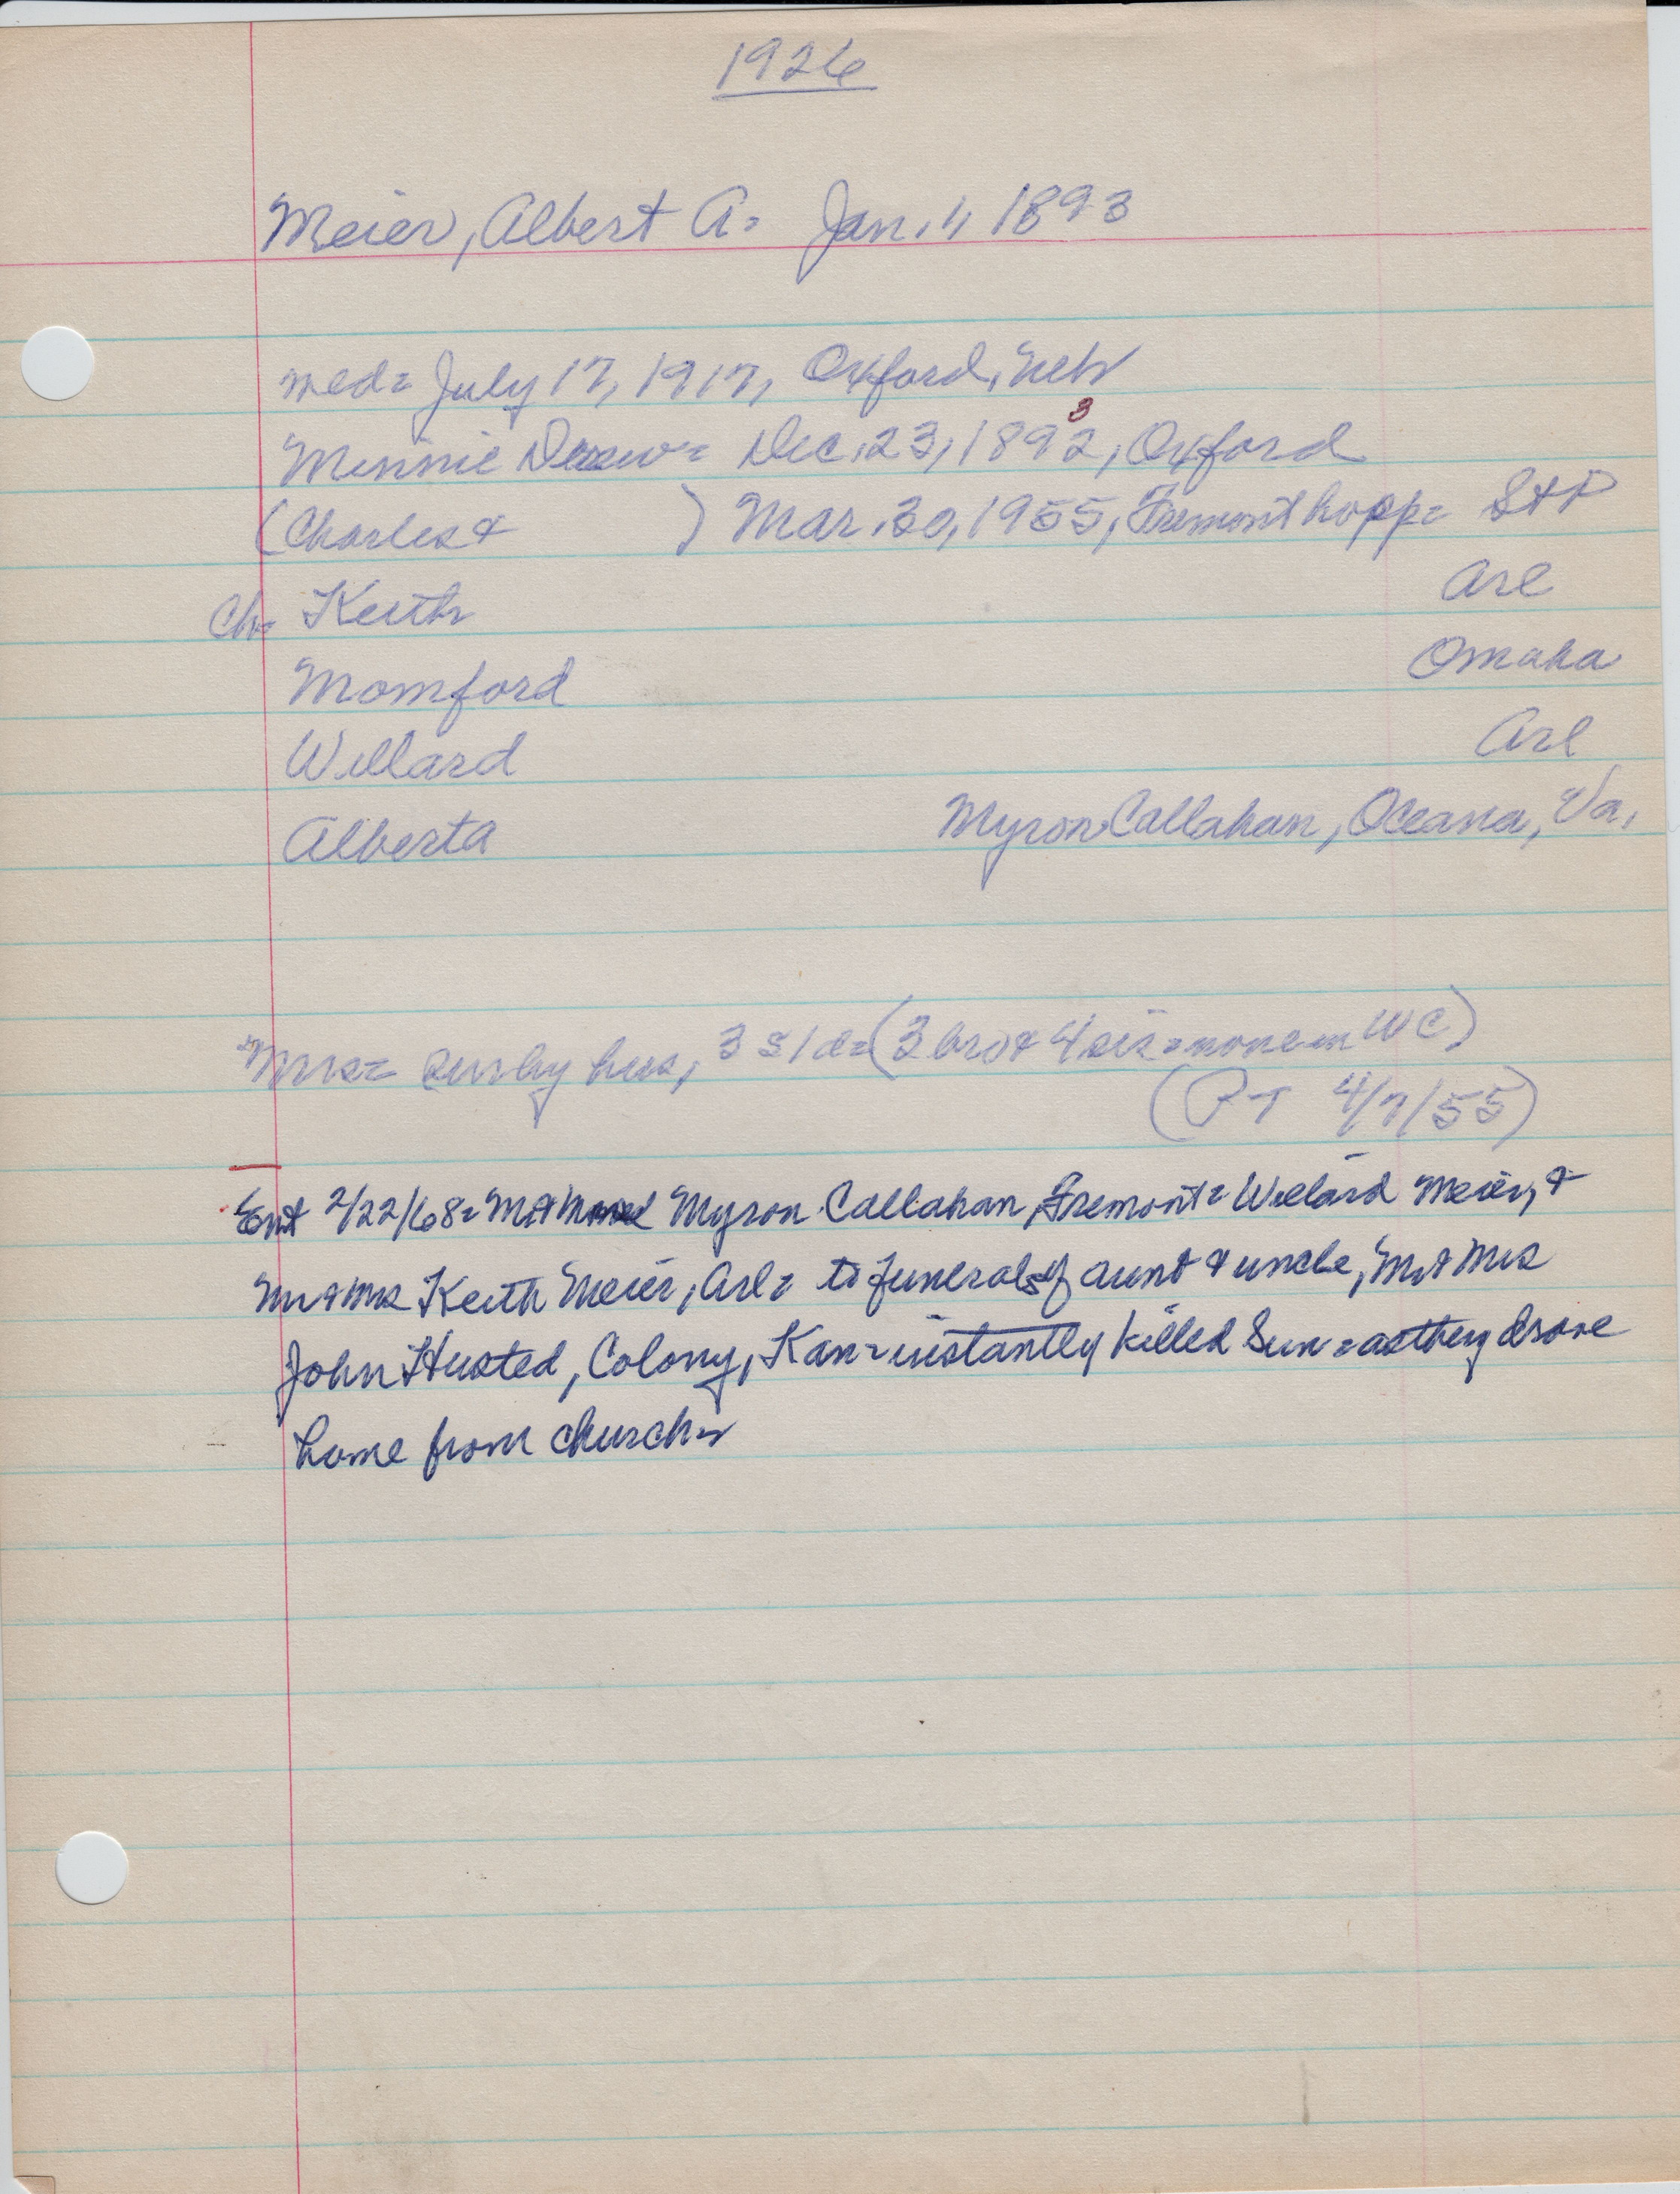 1926
Meier, Albert A= Jan. 1, 1893
med= July 17, 1917, Oxford, Neb
3
Minnie Drew= Dec. 23, 1892, Oxford
(Charles & ) Mar. 30, 1955, Fremont hosp= S+P
Ch= Keith Arl
Momford Omaha
Willard Arl
Alberta Myron Callahan, Oceana, Va,
Mrs= sur by hus, 3 s 1 d= (3 bro & 4 sis=none in WC)
(PT 4/7/55)
Ent 2/22/68= Mr & Myron Callahan, Fremont= Willard Meier, &
Mr & Mrs Keith Meier, Arl= to funerals of aunt & uncle, Mr & Mrs
John Husted, Colony, Kan=instantly killed Sun=as they drove
home from church=